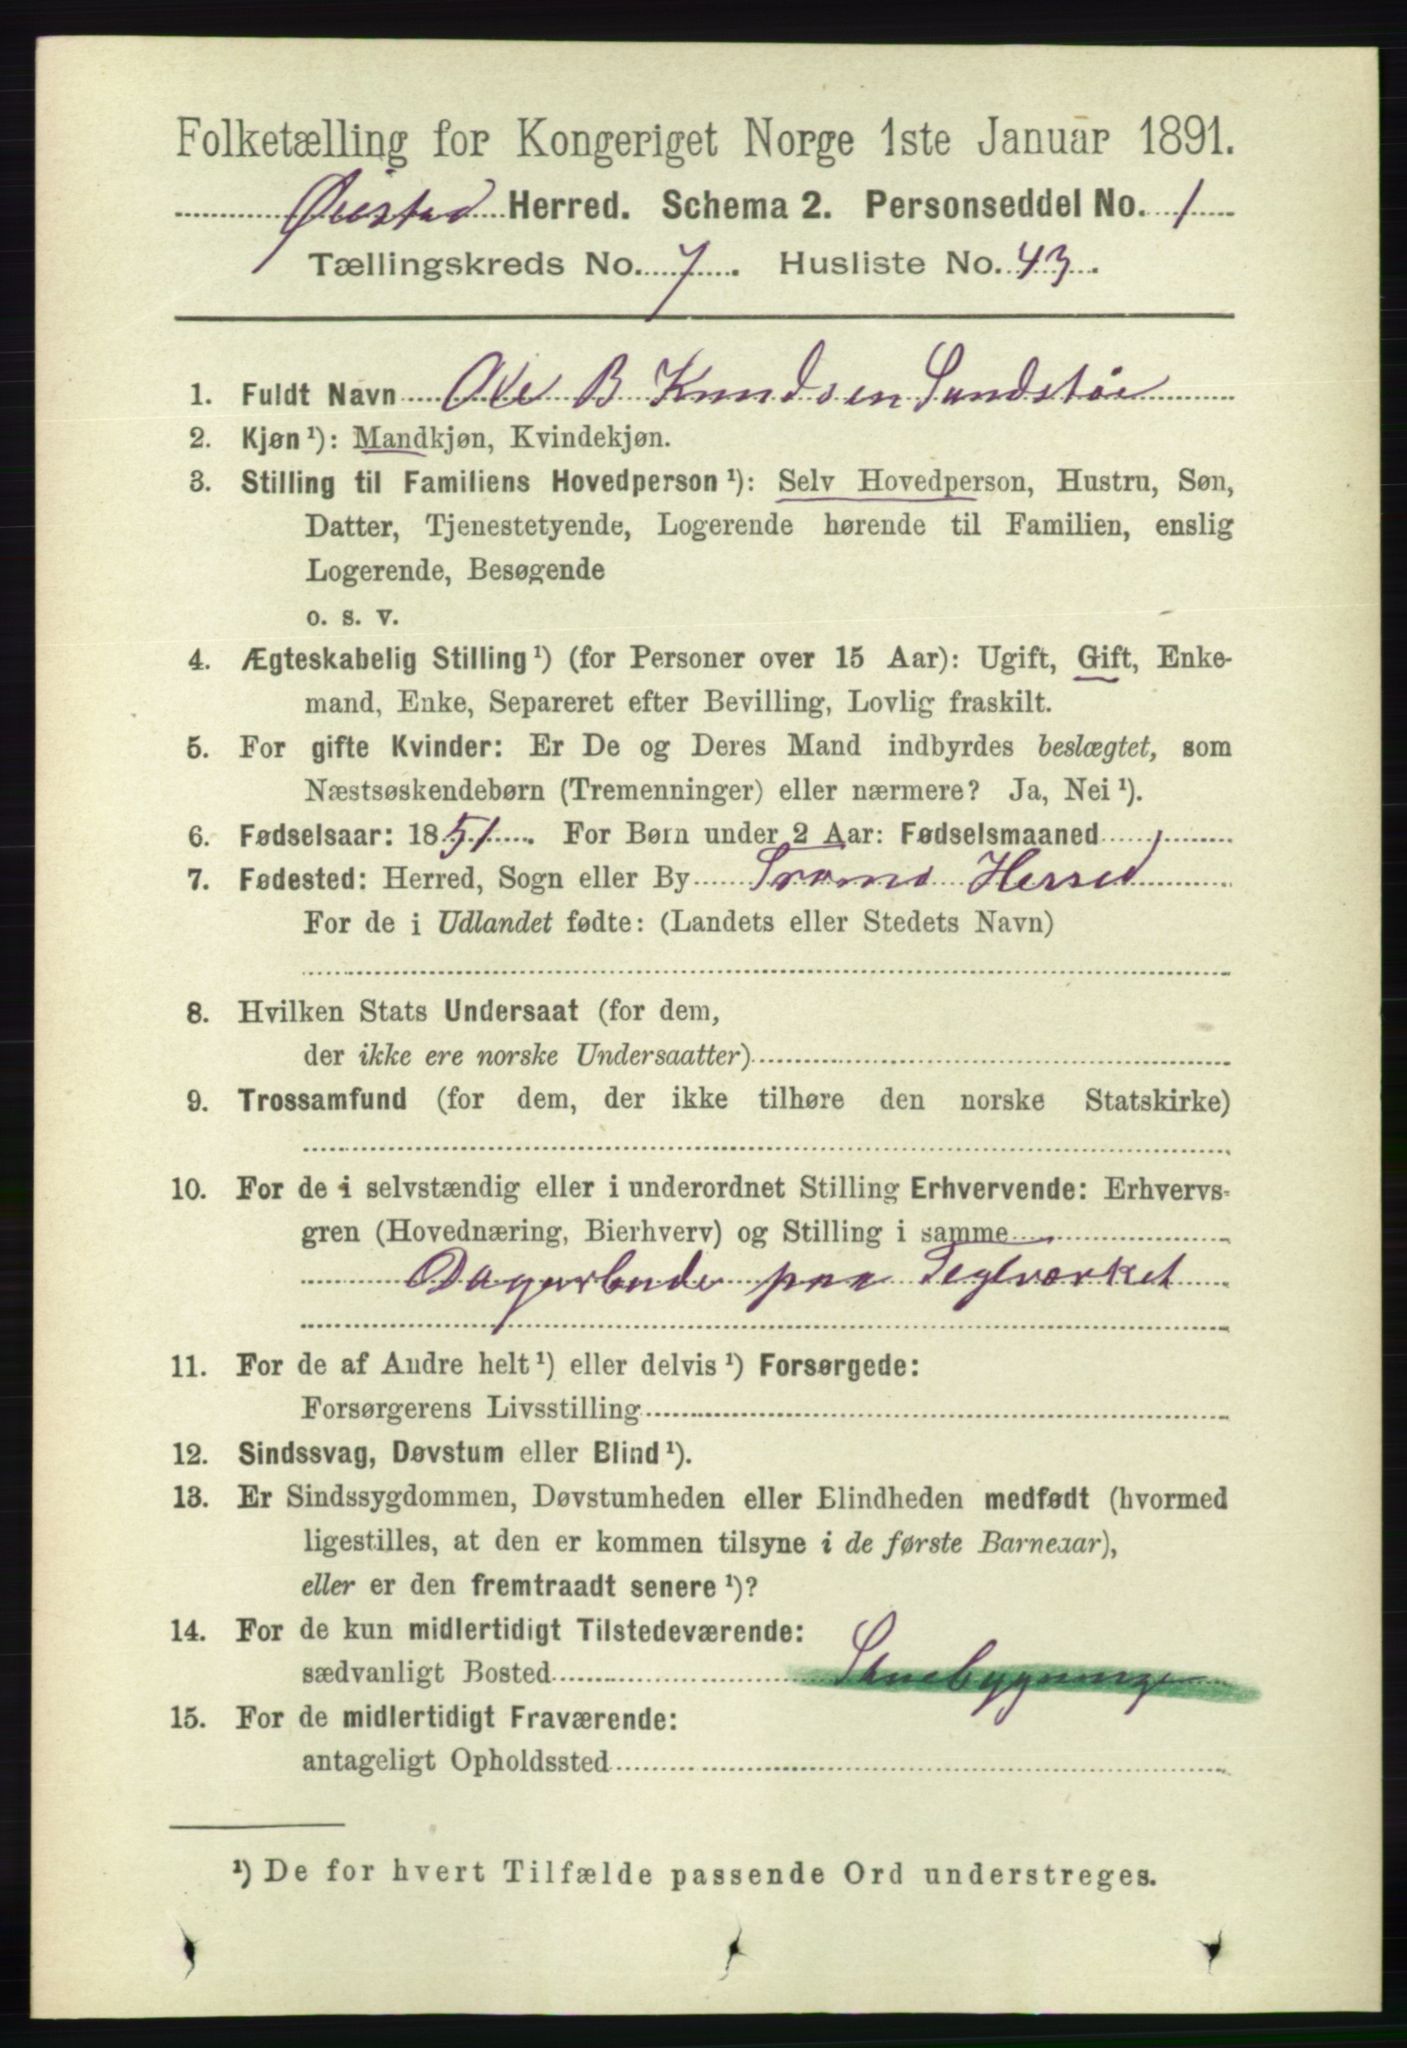 Folketælling for Kongeriget Norge 1ste Januar 1891.
Øiestad Herred. Schema 2. Personseddel No. 1
Tællingskreds No. 7. Husliste No. 43.
1. Fuldt Navn Ole B Knudsen Sandstøe
2. Kjøn ¹): Mandkjøn, Kvindekjøn.
3. Stilling til Familiens Hovedperson ¹): Selv Hovedperson, Hustru, Søn,
Datter, Tjenestetyende, Logerende hørende til Familien, enslig
Logerende, Besøgende
o. s. v.
4. Ægteskabelig Stilling ¹) (for Personer over 15 Aar): Ugift, Gift, Enke-
mand, Enke, Separeret efter Bevilling, Lovlig fraskilt.
5. For gifte Kvinder: Er De og Deres Mand indbyrdes beslægtet, som
Næstsøskendebørn (Tremenninger) eller nærmere? Ja, Nei ¹).
6. Fødselsaar: 1851. For Børn under 2 Aar: Fødselsmaaned
7. Fødested: Herred, Sogn eller By Tromø Herred
For de i Udlandet fødte: (Landets eller Stedets Navn)
8. Hvilken Stats Undersaat (for dem,
der ikke ere norske Undersaatter)
9. Trossamfund (for dem, der ikke tilhøre den norske Statskirke)
10. For de i selvstændig eller i underordnet Stilling Erhvervende: Erhvervs-
gren (Hovednæring, Bierhverv) og Stilling i samme
Dagarbeide paa Teglværket
11. For de af Andre helt ¹) eller delvis ¹) Forsørgede:
Forsørgerens Livsstilling
12. Sindssvag, Døvstum eller Blind ¹).
13. Er Sindssygdommen, Døvstumheden eller Blindheden medfødt (hvormed
ligestilles, at den er kommen tilsyne i de første Barneaar),
eller er den fremtraadt senere ¹)?
14. For de kun midlertidigt Tilstedeværende:
sædvanligt Bosted Stuebygningen
15. For de midlertidigt Fraværende:
antageligt Opholdssted
¹) De for hvert Tilfælde passende Ord understreges.